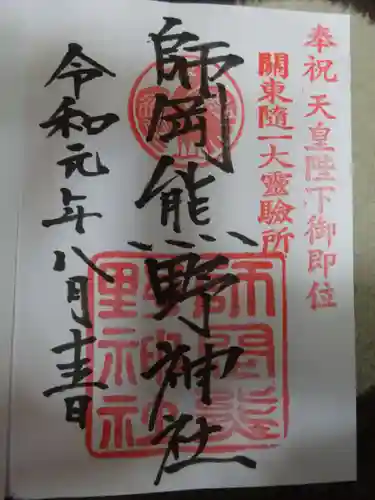 奉祝 天皇陛下御即位
關東隨一大靈驗所
師岡熊野神社
令和元年八月十三日
師岡熊野神社